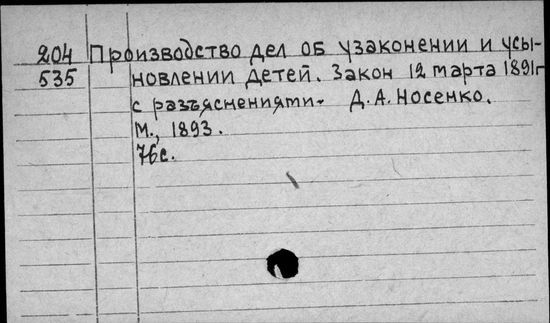 204 Производство дел об узаконении и усы-
535 новлении детей. Закон 12 марта 1891г
с разъяснениями. Д. А. Носенко.
М., 1893.
76с.